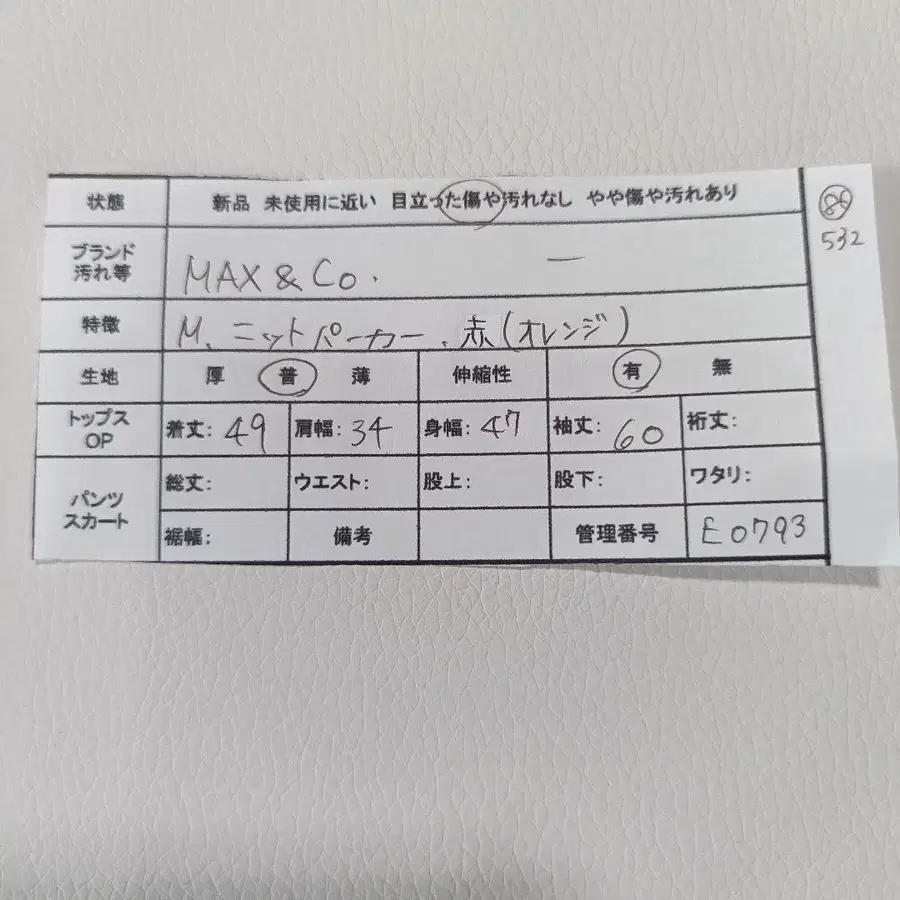 状態 新品 未使用に近い 目立った傷や汚れなし やや傷や汚れあり
86
532
ブランド
汚れ等 MAX & Co. ー
特徴 M、ニットパーカー、赤(オレンジ)
生地 厚 普 薄 伸縮性 有 無
トップス
OP 着丈: 49 肩幅: 34 身幅: 47 袖丈: 60 裄丈:
パンツ
スカート 総丈: ウエスト: 股上: 股下: ワタリ:
裾幅: 備考 管理番号 E0793